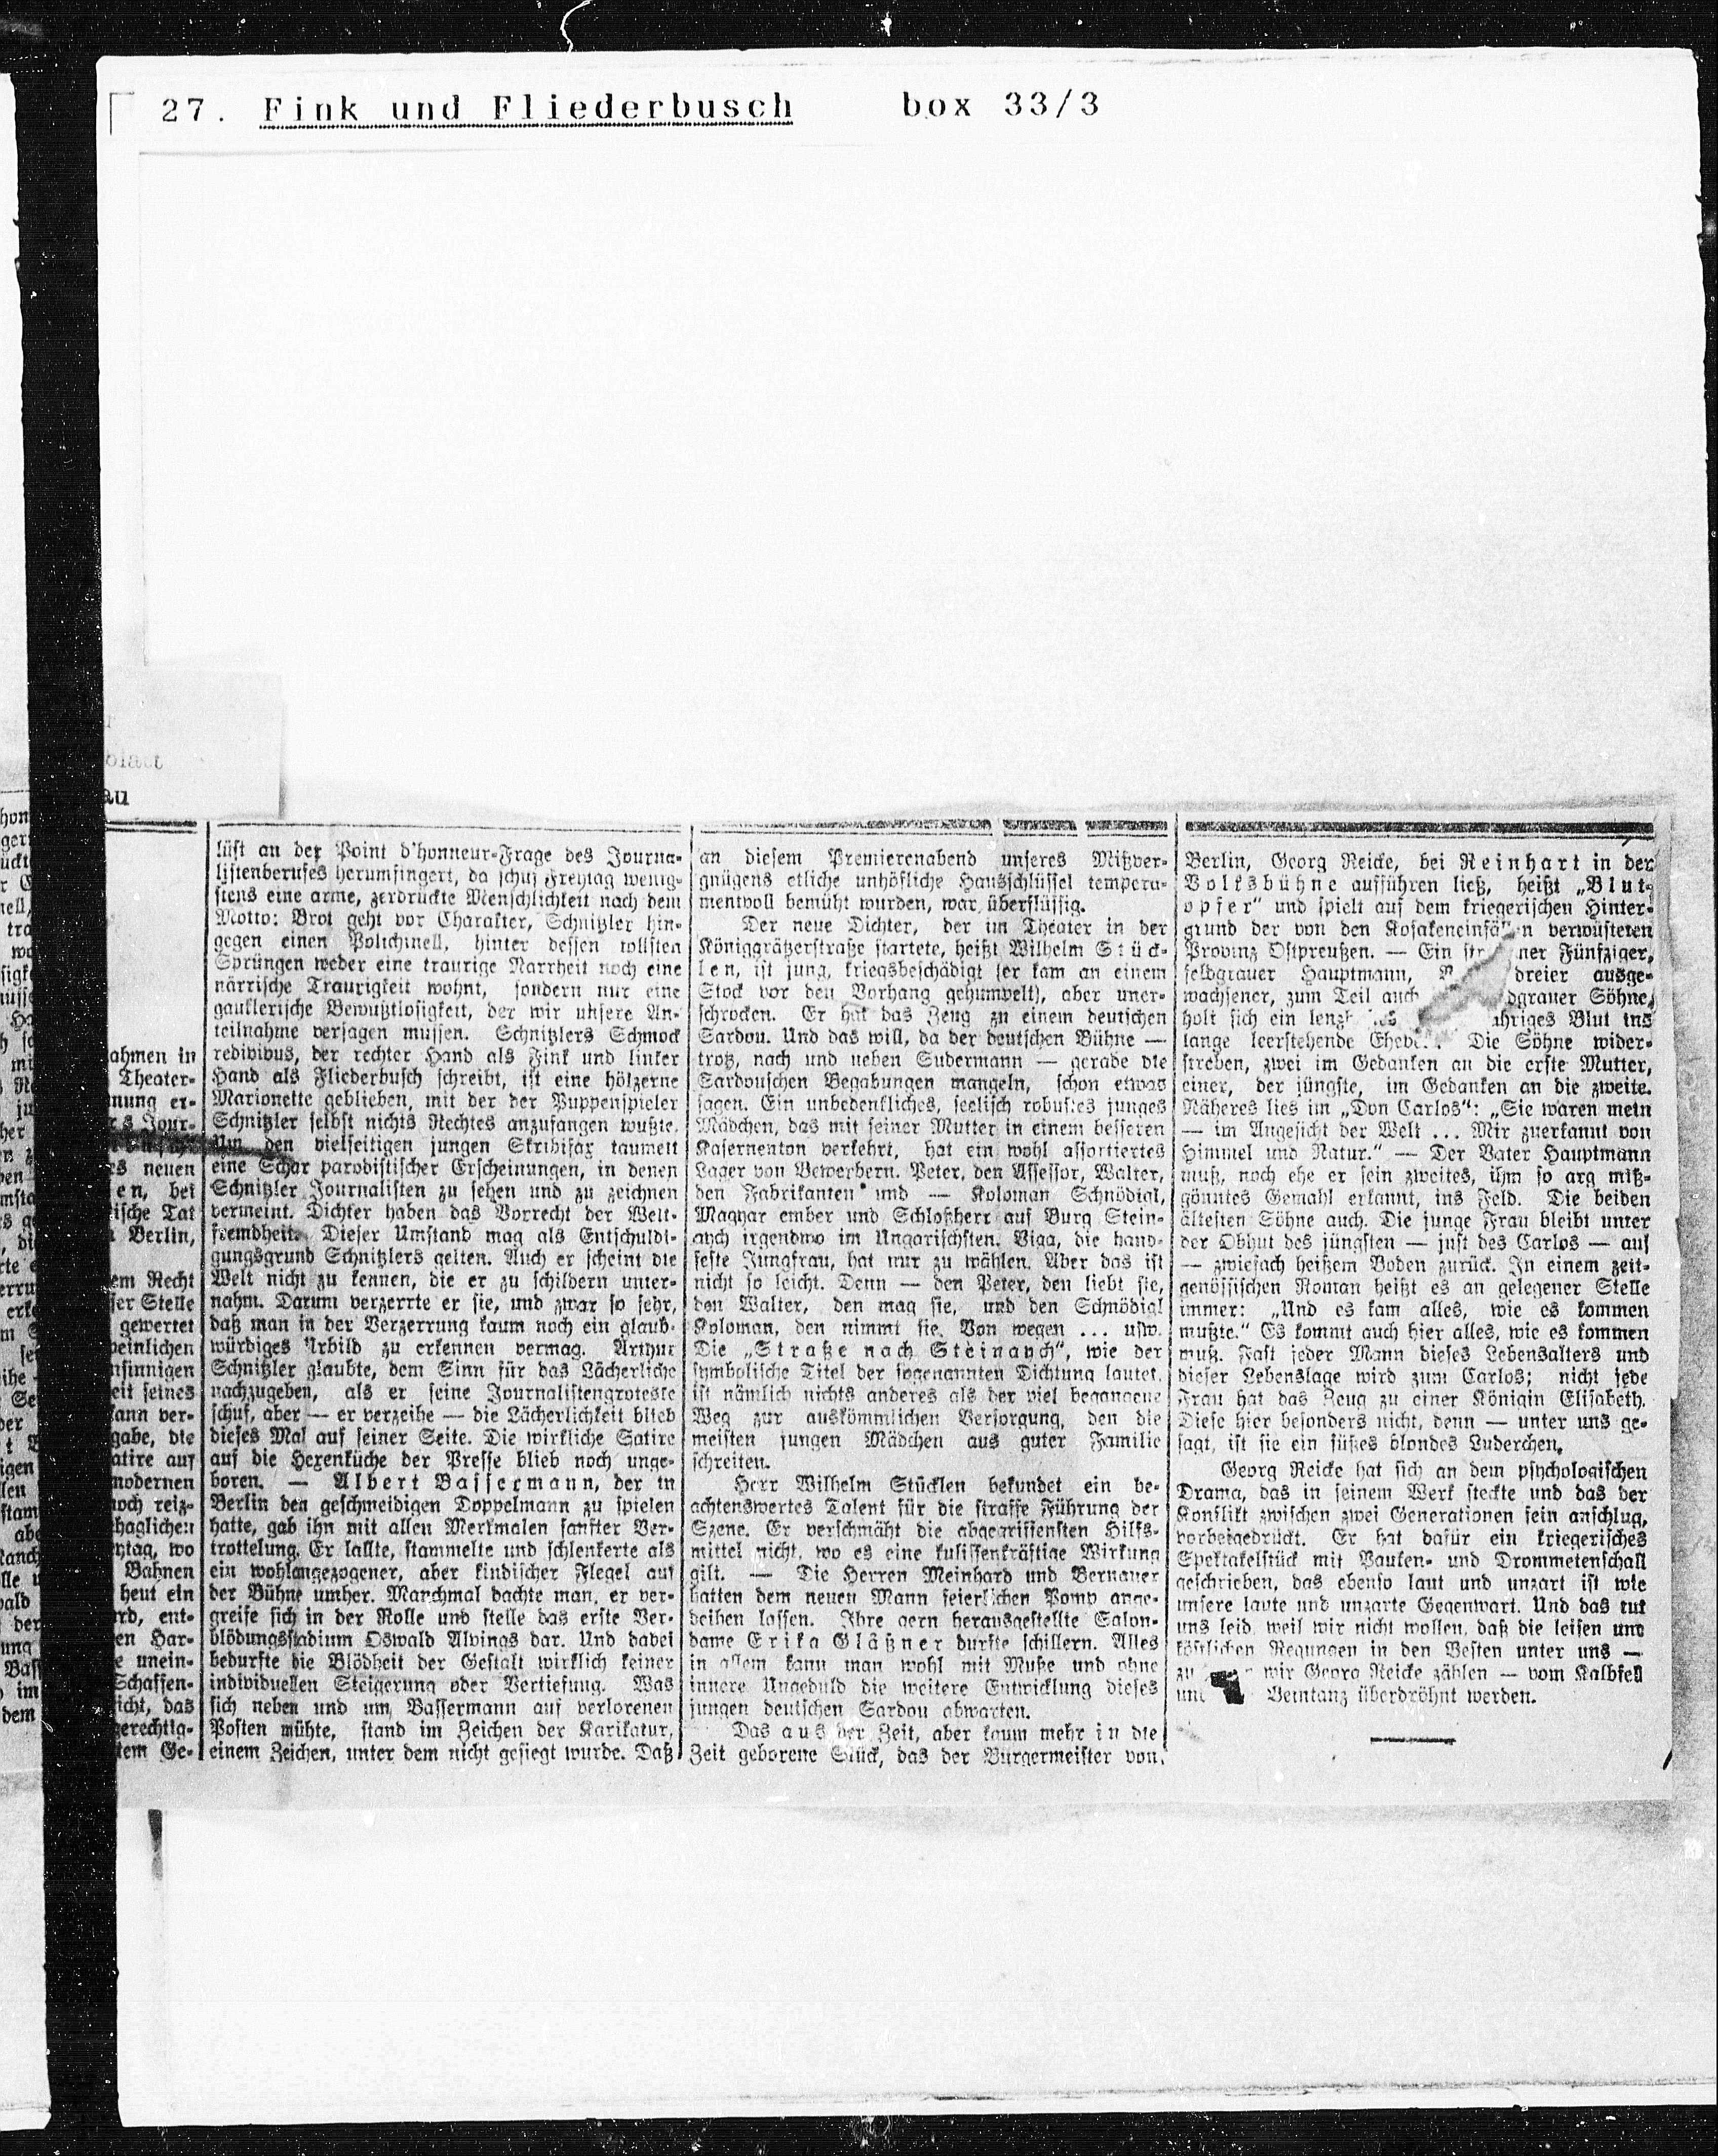 27. Fink und Fliederbusch box 33/3
blatt
au
ahmen in
Theater-
nung er-
rs Jour-
es neuen
en, bei
ische Tat
Berlin,
em Recht
ser Stelle
gewertet
peinlichen
nsinnigen
eit seines
kann ver-
gabe, die
atire auf
modernen
noch reiz-
haglichen
ytag, wo
Bahnen
heut ein
rd, ent-
en Har-
e unein-
Schaffen-
icht, das
gerechtig-
tem Ge-
lüst an der Point d'honneur-Frage des Journa-
listenberufes herumfingert, da schuf Freytag wenig-
stens eine arme, zerdrückte Menschlichkeit nach dem
Motto: Brot geht vor Charakter, Schnitzler hin-
gegen einen Polichinell, hinter dessen tollsten
Sprüngen weder eine traurige Narrheit noch eine
närrische Traurigkeit wohnt, sondern nur eine
gauklerische Bewußtlosigkeit, der wir unsere An-
teilnahme versagen müssen. Schnitzlers Schmock
redivivus, der rechter Hand als Fink und linker
Hand als Fliederbusch schreibt, ist eine hölzerne
Marionette geblieben, mit der der Puppenspieler
Schnitzler selbst nichts Rechtes anzufangen wußte.
Um den vielseitigen jungen Skribifax taumelt
eine Schar parodistischer Erscheinungen, in denen
Schnitzler Journalisten zu sehen und zu zeichnen
vermeint. Dichter haben das Vorrecht der Welt-
fremdheit. Dieser Umstand mag als Entschuldi-
gungsgrund Schnitzlers gelten. Auch er scheint die
Welt nicht zu kennen, die er zu schildern unter-
nahm. Darum verzerrte er sie, und zwar so sehr,
daß man in der Verzerrung kaum noch ein glaub-
würdiges Urbild zu erkennen vermag. Arthur
Schnitzler glaubte, dem Sinn für das Lächerliche
nachzugeben, als er seine Journalistengroteske
schuf, aber — er verzeihe — die Lächerlichkeit blieb
dieses Mal auf seiner Seite. Die wirkliche Satire
auf die Hexenküche der Presse blieb noch unge-
boren. — Albert Bassermann, der in
Berlin den geschmeidigen Doppelmann zu spielen
hatte, gab ihn mit allen Merkmalen sanfter Ver-
trottelung. Er lallte, stammelte und schlenkerte als
ein wohlangezogener, aber kindischer Flegel auf
der Bühne umher. Manchmal dachte man, er ver-
greife sich in der Rolle und stelle das erste Ver-
blödungsstadium Oswald Alvings dar. Und dabei
bedurfte die Blödheit der Gestalt wirklich keiner
individuellen Steigerung oder Vertiefung. Was
sich neben und um Bassermann auf verlorenen
Posten mühte, stand im Zeichen der Karikatur,
einem Zeichen, unter dem nicht gesiegt wurde. Daß
an diesem Premierenabend unseres Mißver-
gnügens etliche unhöfliche Hausschlüssel tempera-
mentvoll bemüht wurden, war überflüssig.
Der neue Dichter, der im Theater in der
Königgrätzerstraße startete, heißt Wilhelm Stück-
len, ist jung, kriegsbeschädigt (er kam an einem
Stock vor den Vorhang gehumpelt), aber uner-
schrocken. Er hat das Zeug zu einem deutschen
Sardou. Und das will, da der deutschen Bühne —
trotz, nach und neben Sudermann — gerade die
Sardouschen Begabungen mangeln, schon etwas
sagen. Ein unbedenkliches, seelisch robustes junges
Mädchen, das mit seiner Mutter in einem besseren
Kasernenton verkehrt, hat ein wohl assortiertes
Lager von Bewerbern. Peter, den Assessor, Walter,
den Fabrikanten und — Koloman Schnödigl,
Magyar ember und Schloßherr auf Burg Stein-
aych irgendwo im Ungarischsten. Viga, die hand-
feste Jungfrau, hat nur zu wählen. Aber das ist
nicht so leicht. Denn — den Peter, den liebt sie,
den Walter, den mag sie, und den Schnödigl
Koloman, den nimmt sie. Von wegen ... usw.
Die „Straße nach Steinaych", wie der
symbolische Titel der sogenannten Dichtung lautet,
ist nämlich nichts anderes als der viel begangene
Weg zur auskömmlichen Versorgung, den die
meisten jungen Mädchen aus guter Familie
schreiten.
Herr Wilhelm Stücklen bekundet ein be-
achtenswertes Talent für die straffe Führung der
Szene. Er verschmäht die abgegriffensten Hilfs-
mittel nicht, wo es eine kulissenkräftige Wirkung
gilt. — Die Herren Meinhard und Bernauer
hatten dem neuen Mann feierlichen Pomp ange-
deihen lassen. Ihre gern herausgestellte Salon-
dame Erika Gläßner durfte schillern. Alles
in allem kann man wohl mit Muße und ohne
innere Ungeduld die weitere Entwicklung dieses
jungen deutschen Sardou abwarten.
Das aus der Zeit, aber kaum mehr in die
Zeit geborene Stück, das der Bürgermeister von
Berlin, Georg Reicke, bei Reinhart in der
Volksbühne aufführen ließ, heißt „Blut-
opfer" und spielt auf dem kriegerischen Hinter-
grund der von den Kosakeneinfällen verwüsteten
Provinz Ostpreußen. — Ein ner Fünfziger,
feldgrauer Hauptmann, dreier ausge-
wachsener, zum Teil auch dgrauer Söhne,
holt sich ein ähriges Blut ins
lange leerstehende Die Söhne wider-
streben, zwei im Gedanken an die erste Mutter,
einer, der jüngste, im Gedanken an die zweite.
Näheres lies im „Don Carlos": „Sie waren mein
— im Angesicht der Welt ... Mir zuerkannt von
Himmel und Natur." — Der Vater Hauptmann
muß, noch ehe er sein zweites, ihm so arg miß-
gönntes Gemahl erkannt, ins Feld. Die beiden
ältesten Söhne auch. Die junge Frau bleibt unter
der Obhut des jüngsten — just des Carlos — auf
— zwiefach heißem Boden zurück. In einem zeit-
genössischen Roman heißt es an gelegener Stelle
immer: „Und es kam alles, wie es kommen
mußte." Es kommt auch hier alles, wie es kommen
muß. Fast jeder Mann dieses Lebensalters und
dieser Lebenslage wird zum Carlos; nicht jede
Frau hat das Zeug zu einer Königin Elisabeth.
Diese hier besonders nicht, denn — unter uns ge-
sagt, ist sie ein süßes blondes Luderchen.
Georg Reicke hat sich an dem psychologischen
Drama, das in seinem Werk steckte und das der
Konflikt zwischen zwei Generationen fein anschlug,
vorbeigedrückt. Er hat dafür ein kriegerisches
Spektakelstück mit Pauken- und Drommetenschall
geschrieben, das ebenso laut und unzart ist wie
unsere laute und unzarte Gegenwart. Und das tut
uns leid, weil wir nicht wollen, daß die leisen und
köstlichen Regungen in den Besten unter uns —
zu wir Georg Reicke zählen — vom Kalbfell
und Beintanz überdröhnt werden.